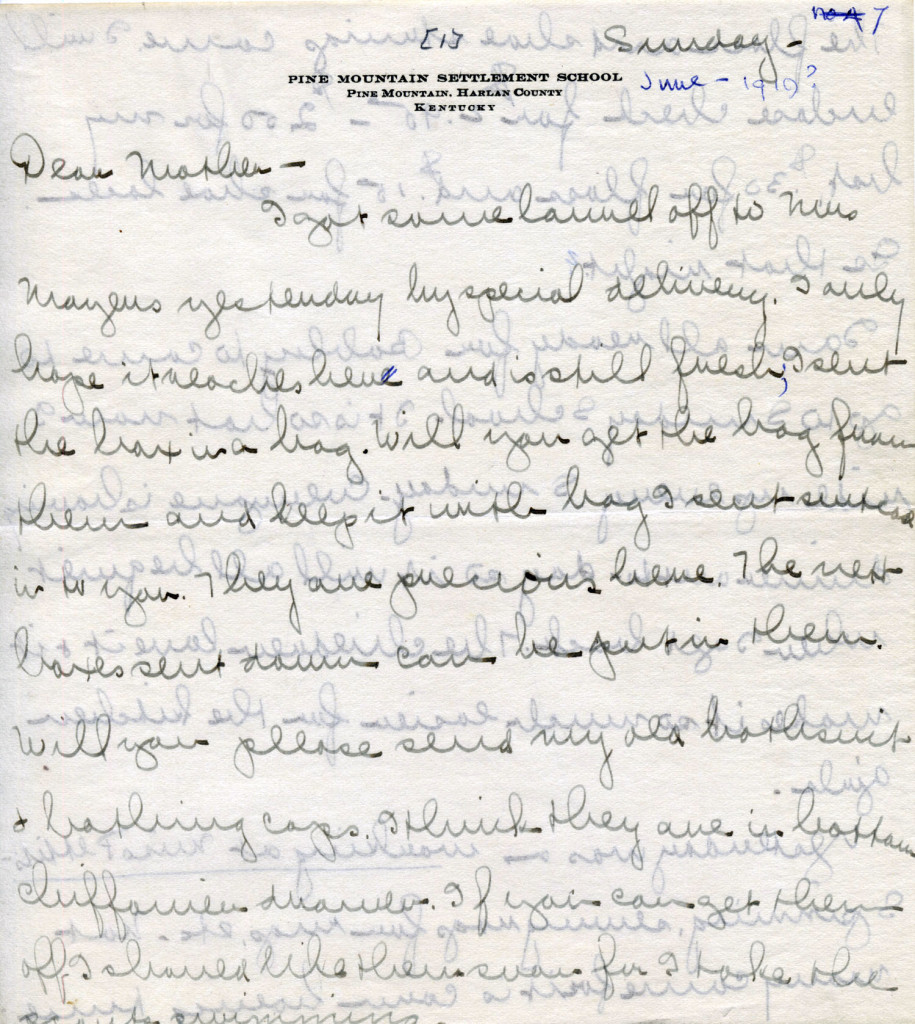 No A 7
[1] Sunday -
PINE MOUNTAIN SETTLEMENT SCHOOL
June - 1919?
PINE MOUNTAIN, HARLAN COUNTY
KENTUCKY
Dear Mother -
I got some laurel off to Mrs
yesterday by special delivery. I only
hope it reaches here and is still fresh; I sent
the box in a bag. Will you get the bag from
them and keep it with bag I sent suit
in to you. They are precious here. The next
boxes sent down can be put in them.
Will you please send my old bath suit
& bathing caps. I think they are in bottom
chiffonier drawer. If you can get them
off I should like them soon for I take the
scouts swimming.